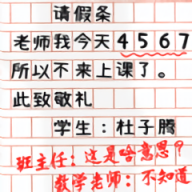 请假条
老师我今天4567
所以不来上课了。
此致敬礼
学生：杜子腾
班主任：这是啥意思？
数学老师：不知道